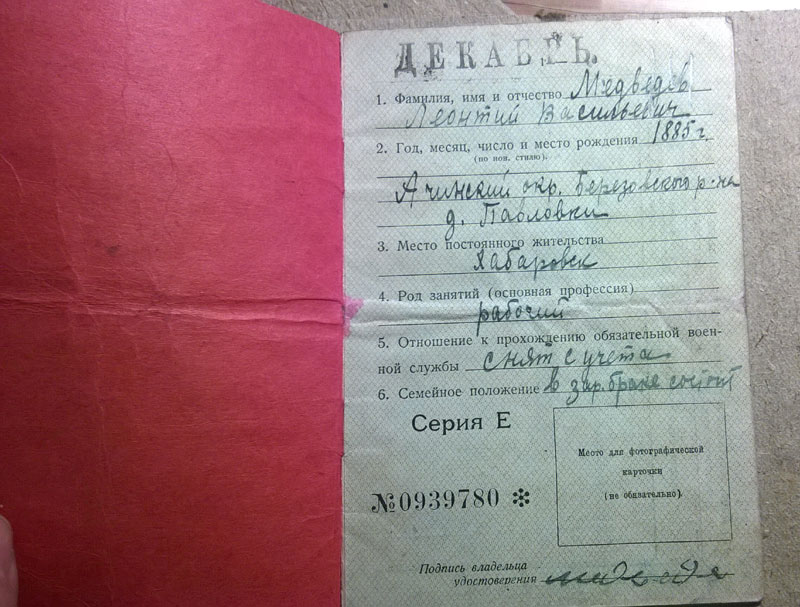 ДЕКАБРЬ.
1. Фамилия, имя и отчество Медведев
Леонтий Васильевич
2. Год, месяц, число и место рождения 1885 г.
(по нов. стилю).
Ачинский окр. Березовского р-на
д. Павловки
3. Место постоянного жительства
Хабаровск
4. Род занятий (основная профессия)
рабочий
5. Отношение к прохождению обязательной воен-
ной службы снят с учета
6. Семейное положение в зар. браке состоит
Серия Е
Место для фотографической
карточки
(не обязательно).
№ 0939780 ✻
Подпись владельца
удостоверения